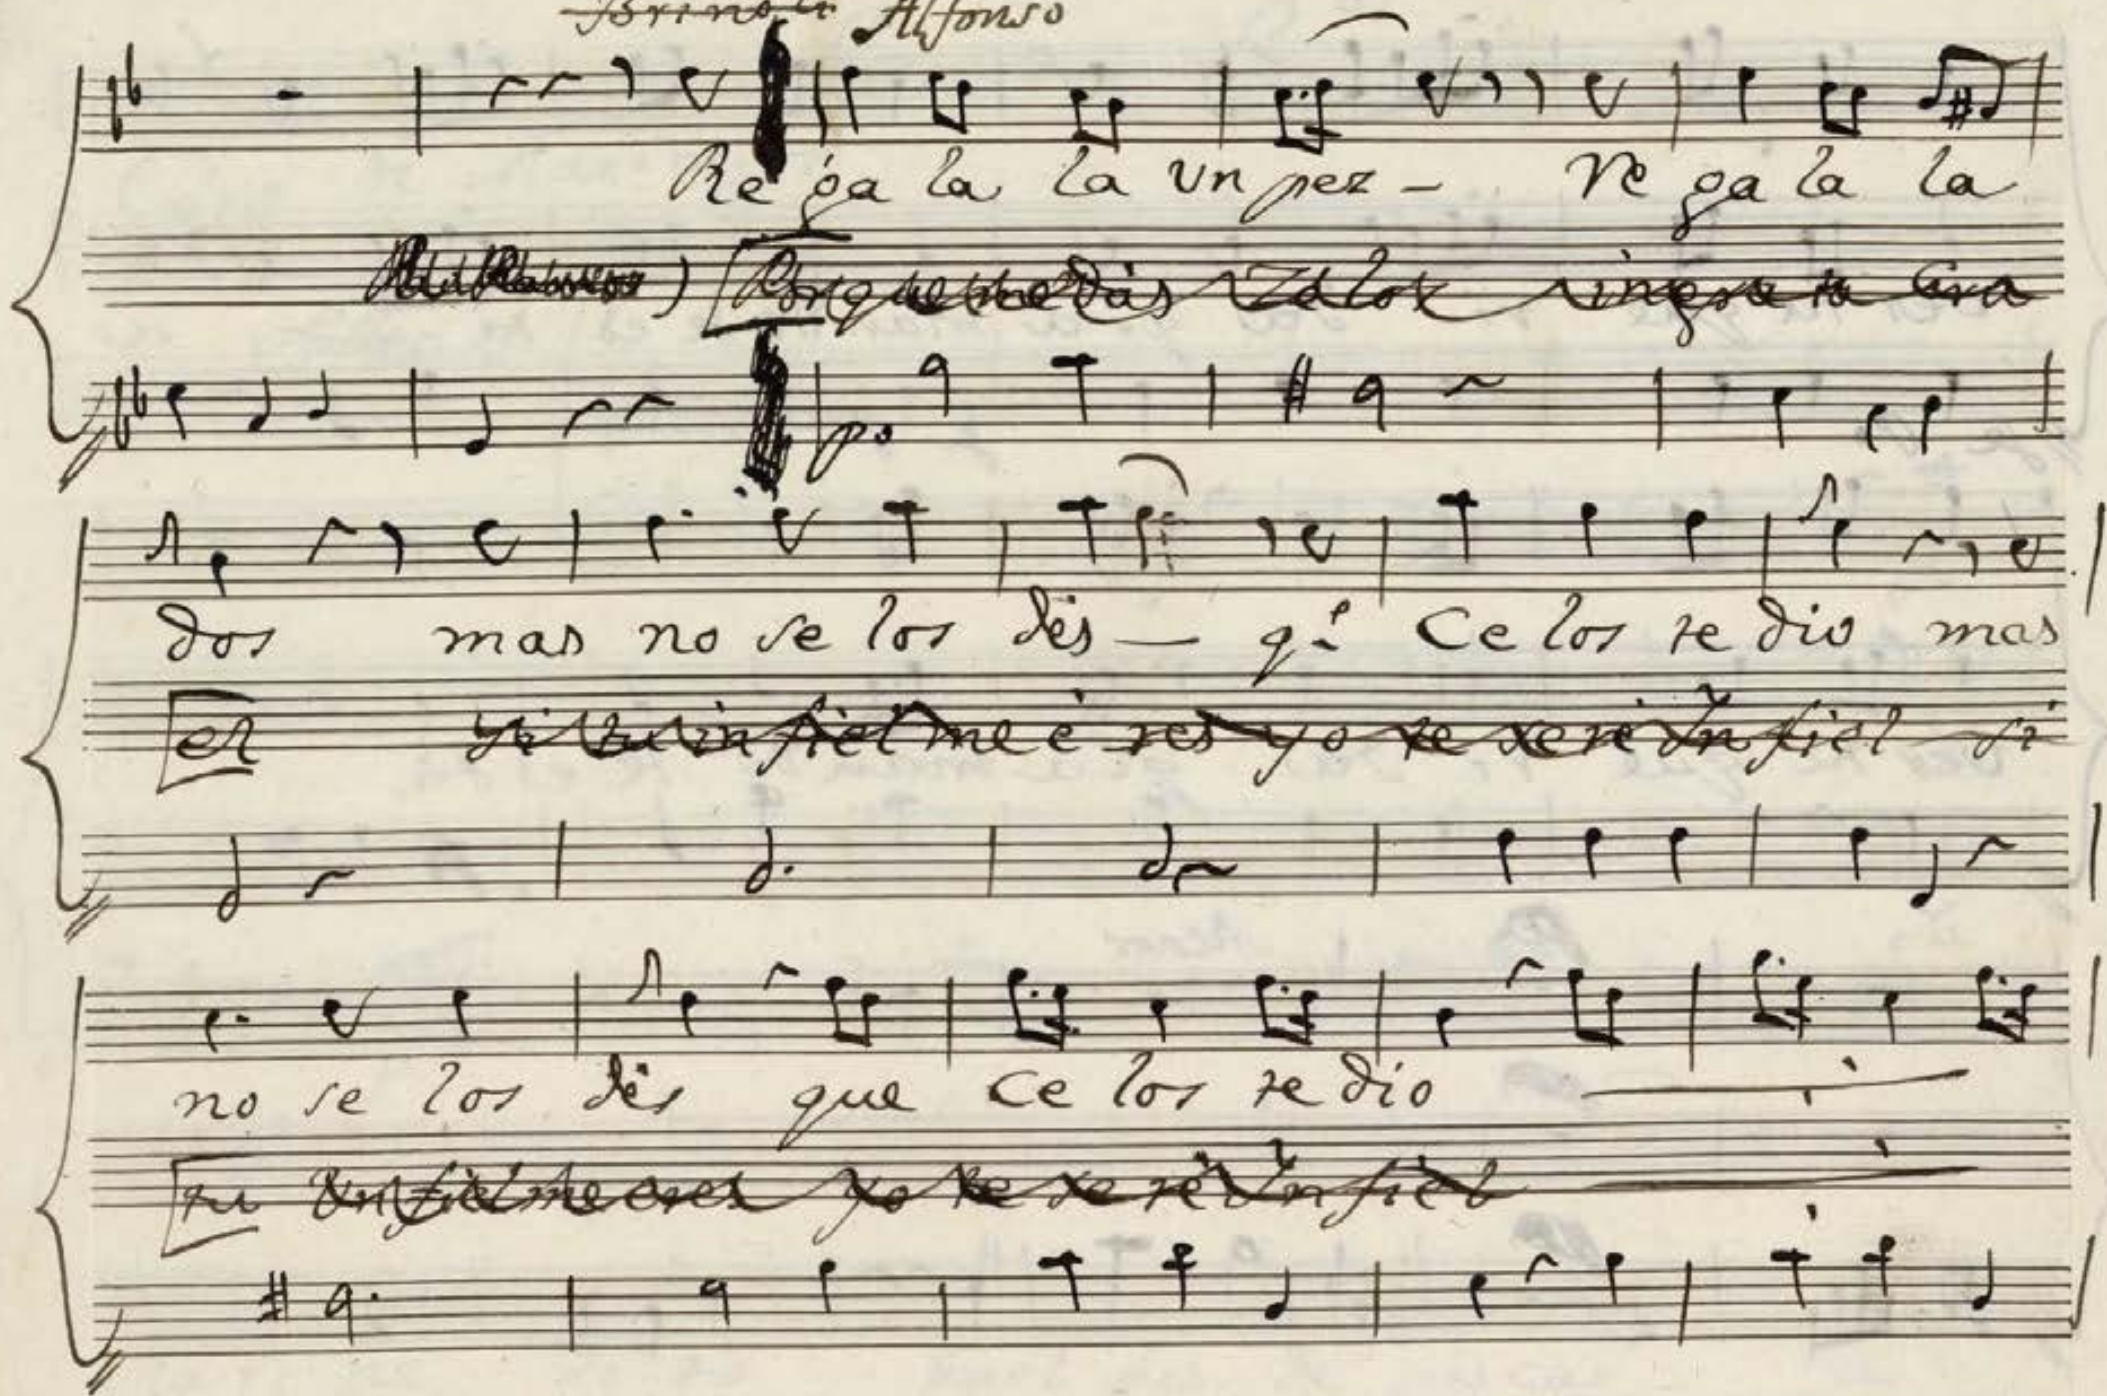 Alfonso
Re ga la la Un pez - Re ga la la
Porque me dàs Zelos ingrata Era
p.o
dos mas no se los dès - q.e Ce los te dio mas
es si tu infiel me è res yo te serè Infiel si
no se los dès que Ce los te dio
tu Infiel me eres yo te serè Infiel